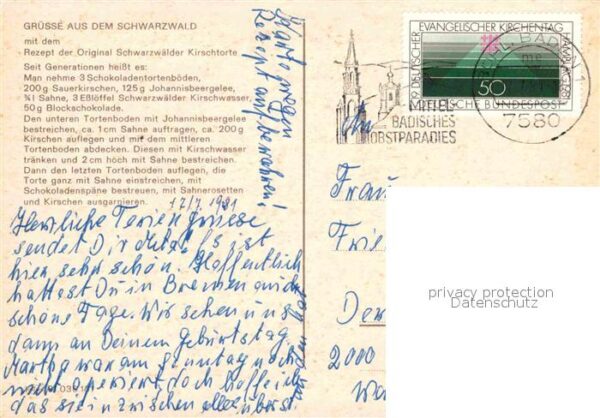 GRÜSSE AUS DEM SCHWARZWALD
mit dem
Rezept der Original Schwarzwälder Kirschtorte
Seit Generationen heißt es:
Man nehme 3 Schokoladentortenböden,
200 g Sauerkirschen, 125 g Johannisbeergelee,
¾ l Sahne, 3 Eßlöffel Schwarzwälder Kirschwasser,
50 g Blockschokolade.
Den unteren Tortenboden mit Johannisbeergelee
bestreichen, ca. 1 cm Sahne auftragen, ca. 200 g
Kirschen auflegen und mit dem mittleren
Tortenboden abdecken. Diesen mit Kirschwasser
tränken und 2 cm hoch mit Sahne bestreichen.
Dann den letzten Tortenboden auflegen, die
Torte ganz mit Sahne einstreichen, mit
Schokoladenspäne bestreuen, mit Sahnerosetten
und Kirschen ausgarnieren.
17/7 1981
Herzliche Feriengrüsse
sendet Dir Es ist
hier sehr schön. Hoffentlich
hattest Du in Bremen auch
schöne Tage. Wir sehen uns
dann an Deinem Geburtstag.
Martha war am Sonntag noch
nicht operiert, doch hoffe ich
das sie inzwischen alles überst.
Karte wegen
Rezept aufbewahren!
19. DEUTSCHER EVANGELISCHER KIRCHENTAG HAMBURG 1981
50
DEUTSCHE BUNDESPOST
BADEN
7580
MITTEL
BADISCHES
OBSTPARADIES
An
Frau
2000
privacy protection
Datenschutz